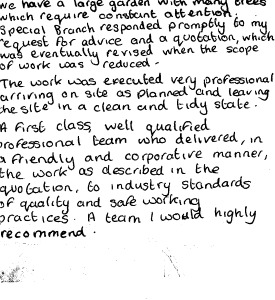 We have a large garden with many trees
which require constant attention.
Special Branch responded promptly to my
request for advice and a quotation, which
was eventually revised when the scope
of work was reduced.
The work was executed very professional
arriving on site as planned and leaving
the site in a clean and tidy state.
A first class, well qualified
professional team who delivered, in
a friendly and corporative manner,
the work as described in the
quotation, to industry standards
of quality and safe working
practices. A team I would highly
recommend.